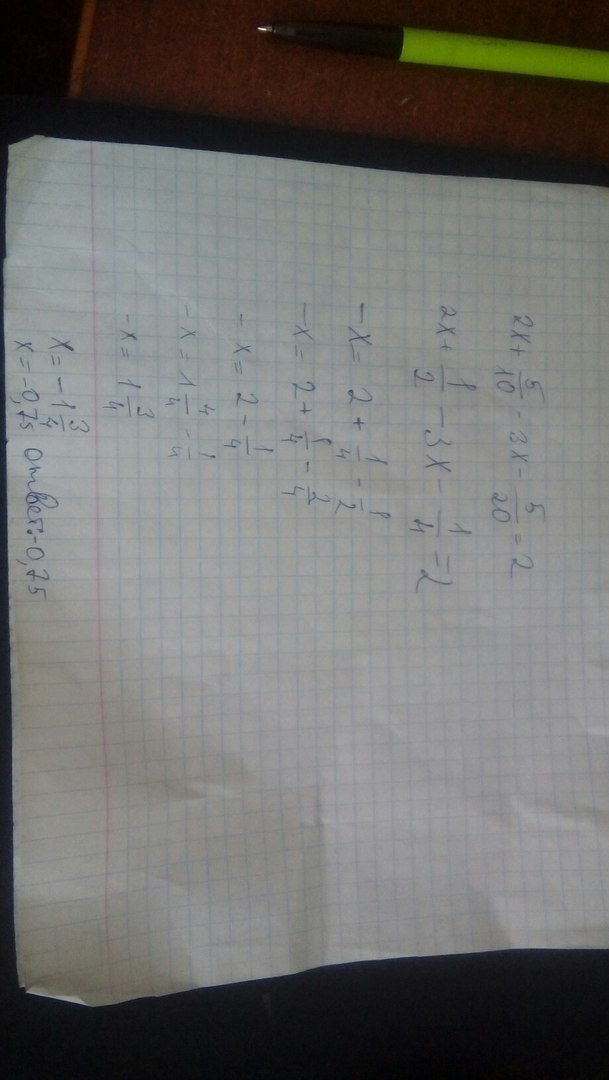 2x + 5/10 - 3x - 5/20 = 2
2x + 1/2 - 3x - 1/4 = 2
-x = 2 + 1/4 - 1/2
-x = 2 + 1/4 - 2/4
-x = 2 - 1/4
-x = 1 4/4 - 1/4
-x = 1 3/4
x = -1 3/4
x = -0,75 ответ: -0,75